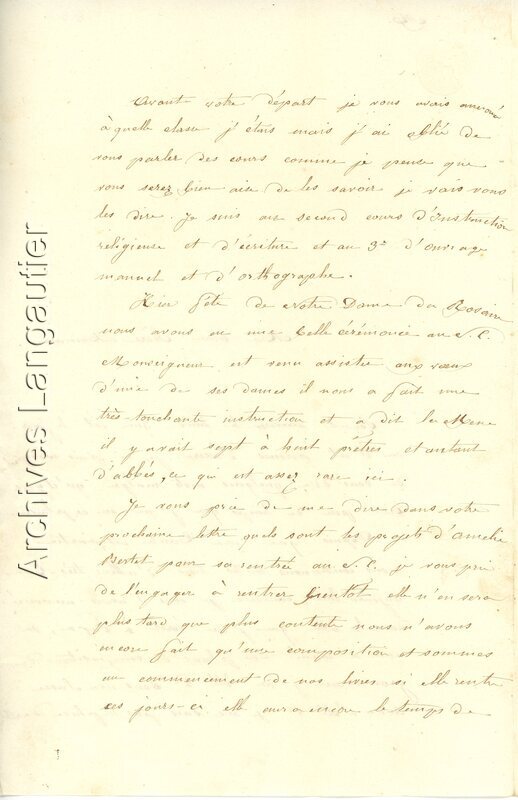 Avant votre départ je vous avais annoncé
à quelle classe j'étais mais j'ai oblié de
vous parler des cours comme je pense que
vous serez bien aise de les savoir je vais vous
les dire. Je suis au second cours d'Instruction
religieuse et d'écriture et au 3e d'ouvrage
manuel et d'orthographe.
Hier fête de Notre Dame du Rosaire
nous avons eu une belle cérémonie au S. C.
Monseigneur est venu assister aux vœux
d'une de ses dames il nous a fait une
très touchante instruction et a dit la Messe
il y avait sept à huit prêtres et autant
d'abbés, ce qui est assez rare ici.
Je vous prie de me dire dans votre
prochaine lettre quels sont les projets d'Amélie
Bertet pour sa rentrée au S. C. je vous prie
de l'engager à rentrer bientôt elle n'en sera
plus tard que plus contente nous n'avons
encore fait qu'une composition et sommes
au commencement de nos livres si elle rentre
ces jours-ci elle aura encore le temps de
Archives Langautier